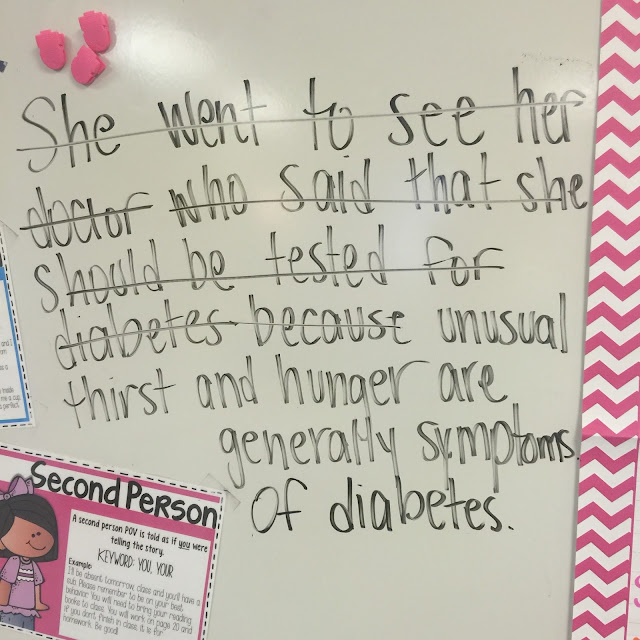 She went to see her
doctor who said that she
should be tested for
diabetes because unusual
thirst and hunger are
generally symptoms
of diabetes.
Second Person
A second person POV is told as if you were
telling the story.
KEYWORD: YOU, YOUR
Example:
I'll be absent tomorrow, class and you'll have a
sub. Please remember to be on your best
behavior. You will need to bring your reading
books to class. You will work on page 20 and
if you don't finish in class, it is for
homework. Be good!